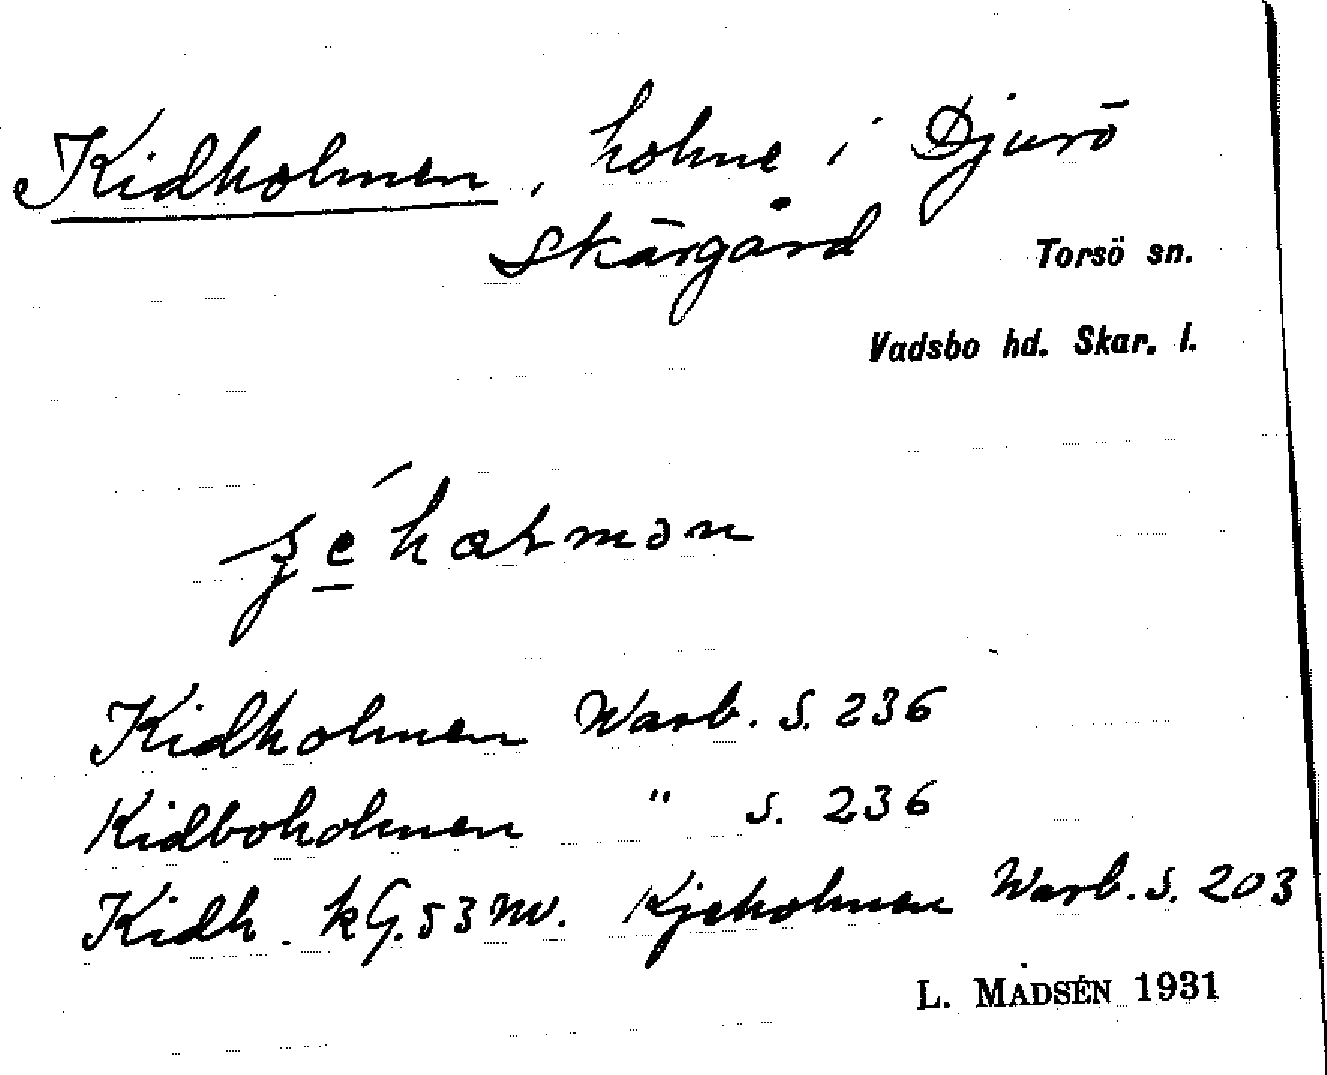 Kidholmen, holme i Djurö
skärgård
Torsö sn.
Vadsbo hd. Skar. l.
Kidholmen Warb. S. 236
Kidboholmen " S. 236
Kidh. kG. 53 NV. Kjeholmen Warb. S. 203
L. MADSÉN 1931